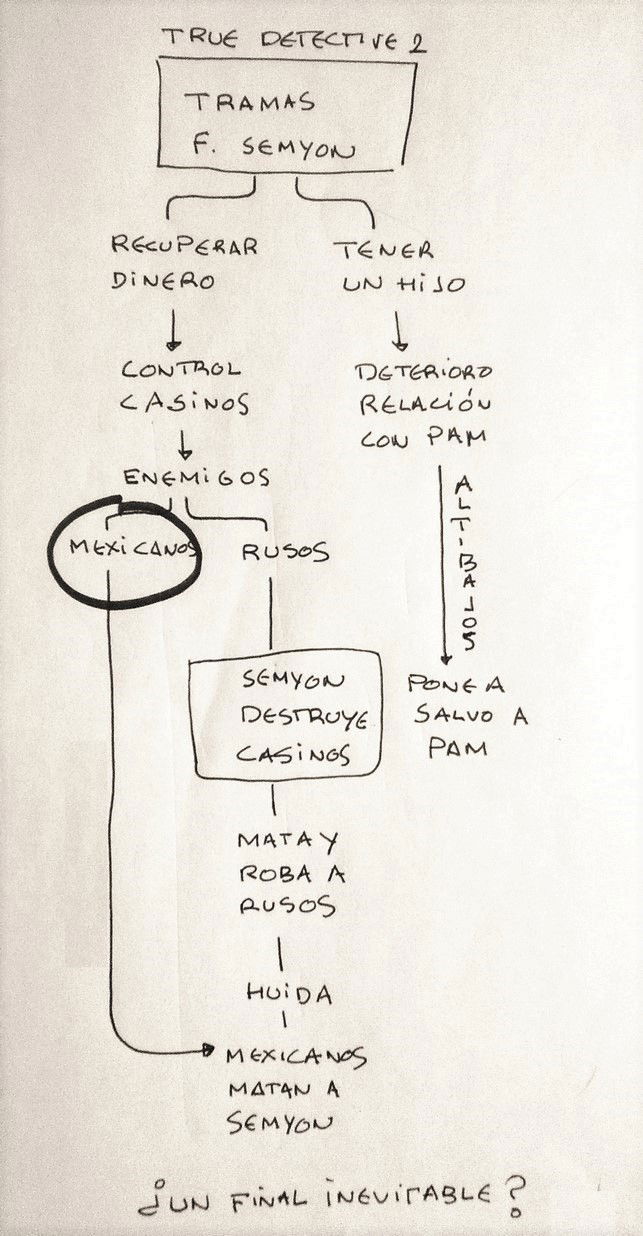 TRUE DETECTIVE 2
TRAMAS
F. SEMYON
RECUPERAR
DINERO
TENER
UN HIJO
CONTROL
CASINOS
DETERIORO
RELACIÓN
CON PAM
ENEMIGOS
MEXICANOS
RUSOS
ALTIBAJOS
SEMYON
DESTRUYE
CASINOS
PONE A
SALVO A
PAM
MATA Y
ROBA A
RUSOS
HUIDA
MEXICANOS
MATAN A
SEMYON
¿UN FINAL INEVITABLE?